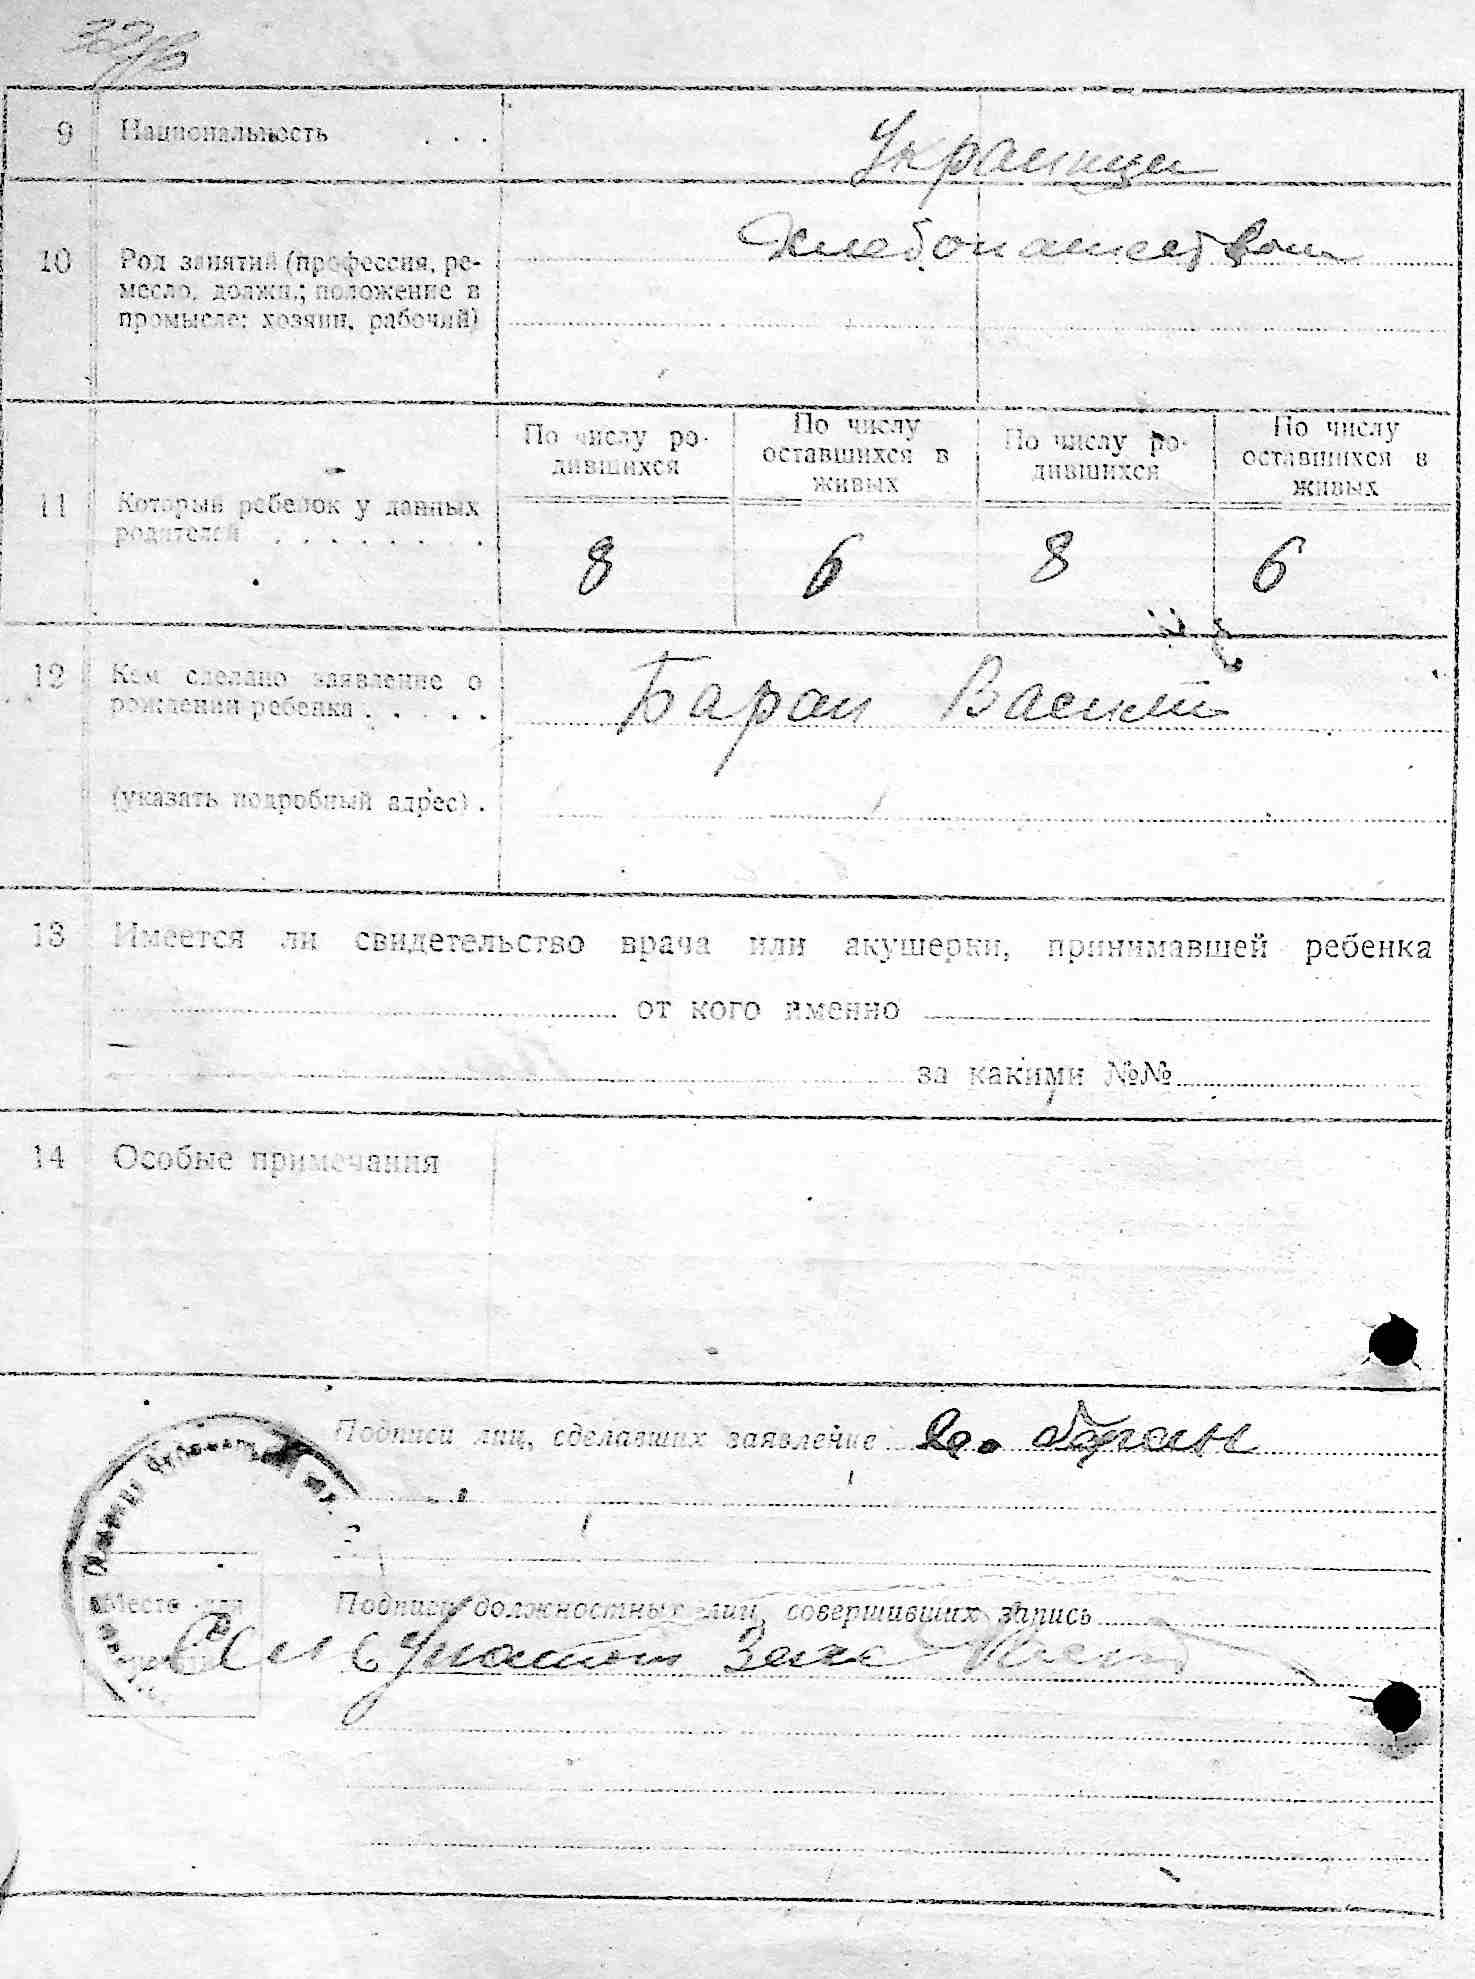 9 Национальность . . . Украинцы
10 Род занятий (профессия, ре-
месло, должн.; положение в
промысле: хозяин, рабочий)
Хлебопашеством
По числу ро-
дившихся
По числу
оставшихся в
живых
По числу ро-
дившихся
По числу
оставшихся в
живых
11 Который ребенок у данных
родителей . . . . . . . .
8 6 8 6
12 Кем сделано заявление о
рождении ребенка . . . . .
Баран Василий
(указать подробный адрес) .
13 Имеется ли свидетельство врача или акушерки, принимавшей ребенка
от кого именно
за какими №№
14 Особые примечания
Подписи лиц, сделавших заявление Баран
Место для
Подписи должностных лиц, совершивших запись